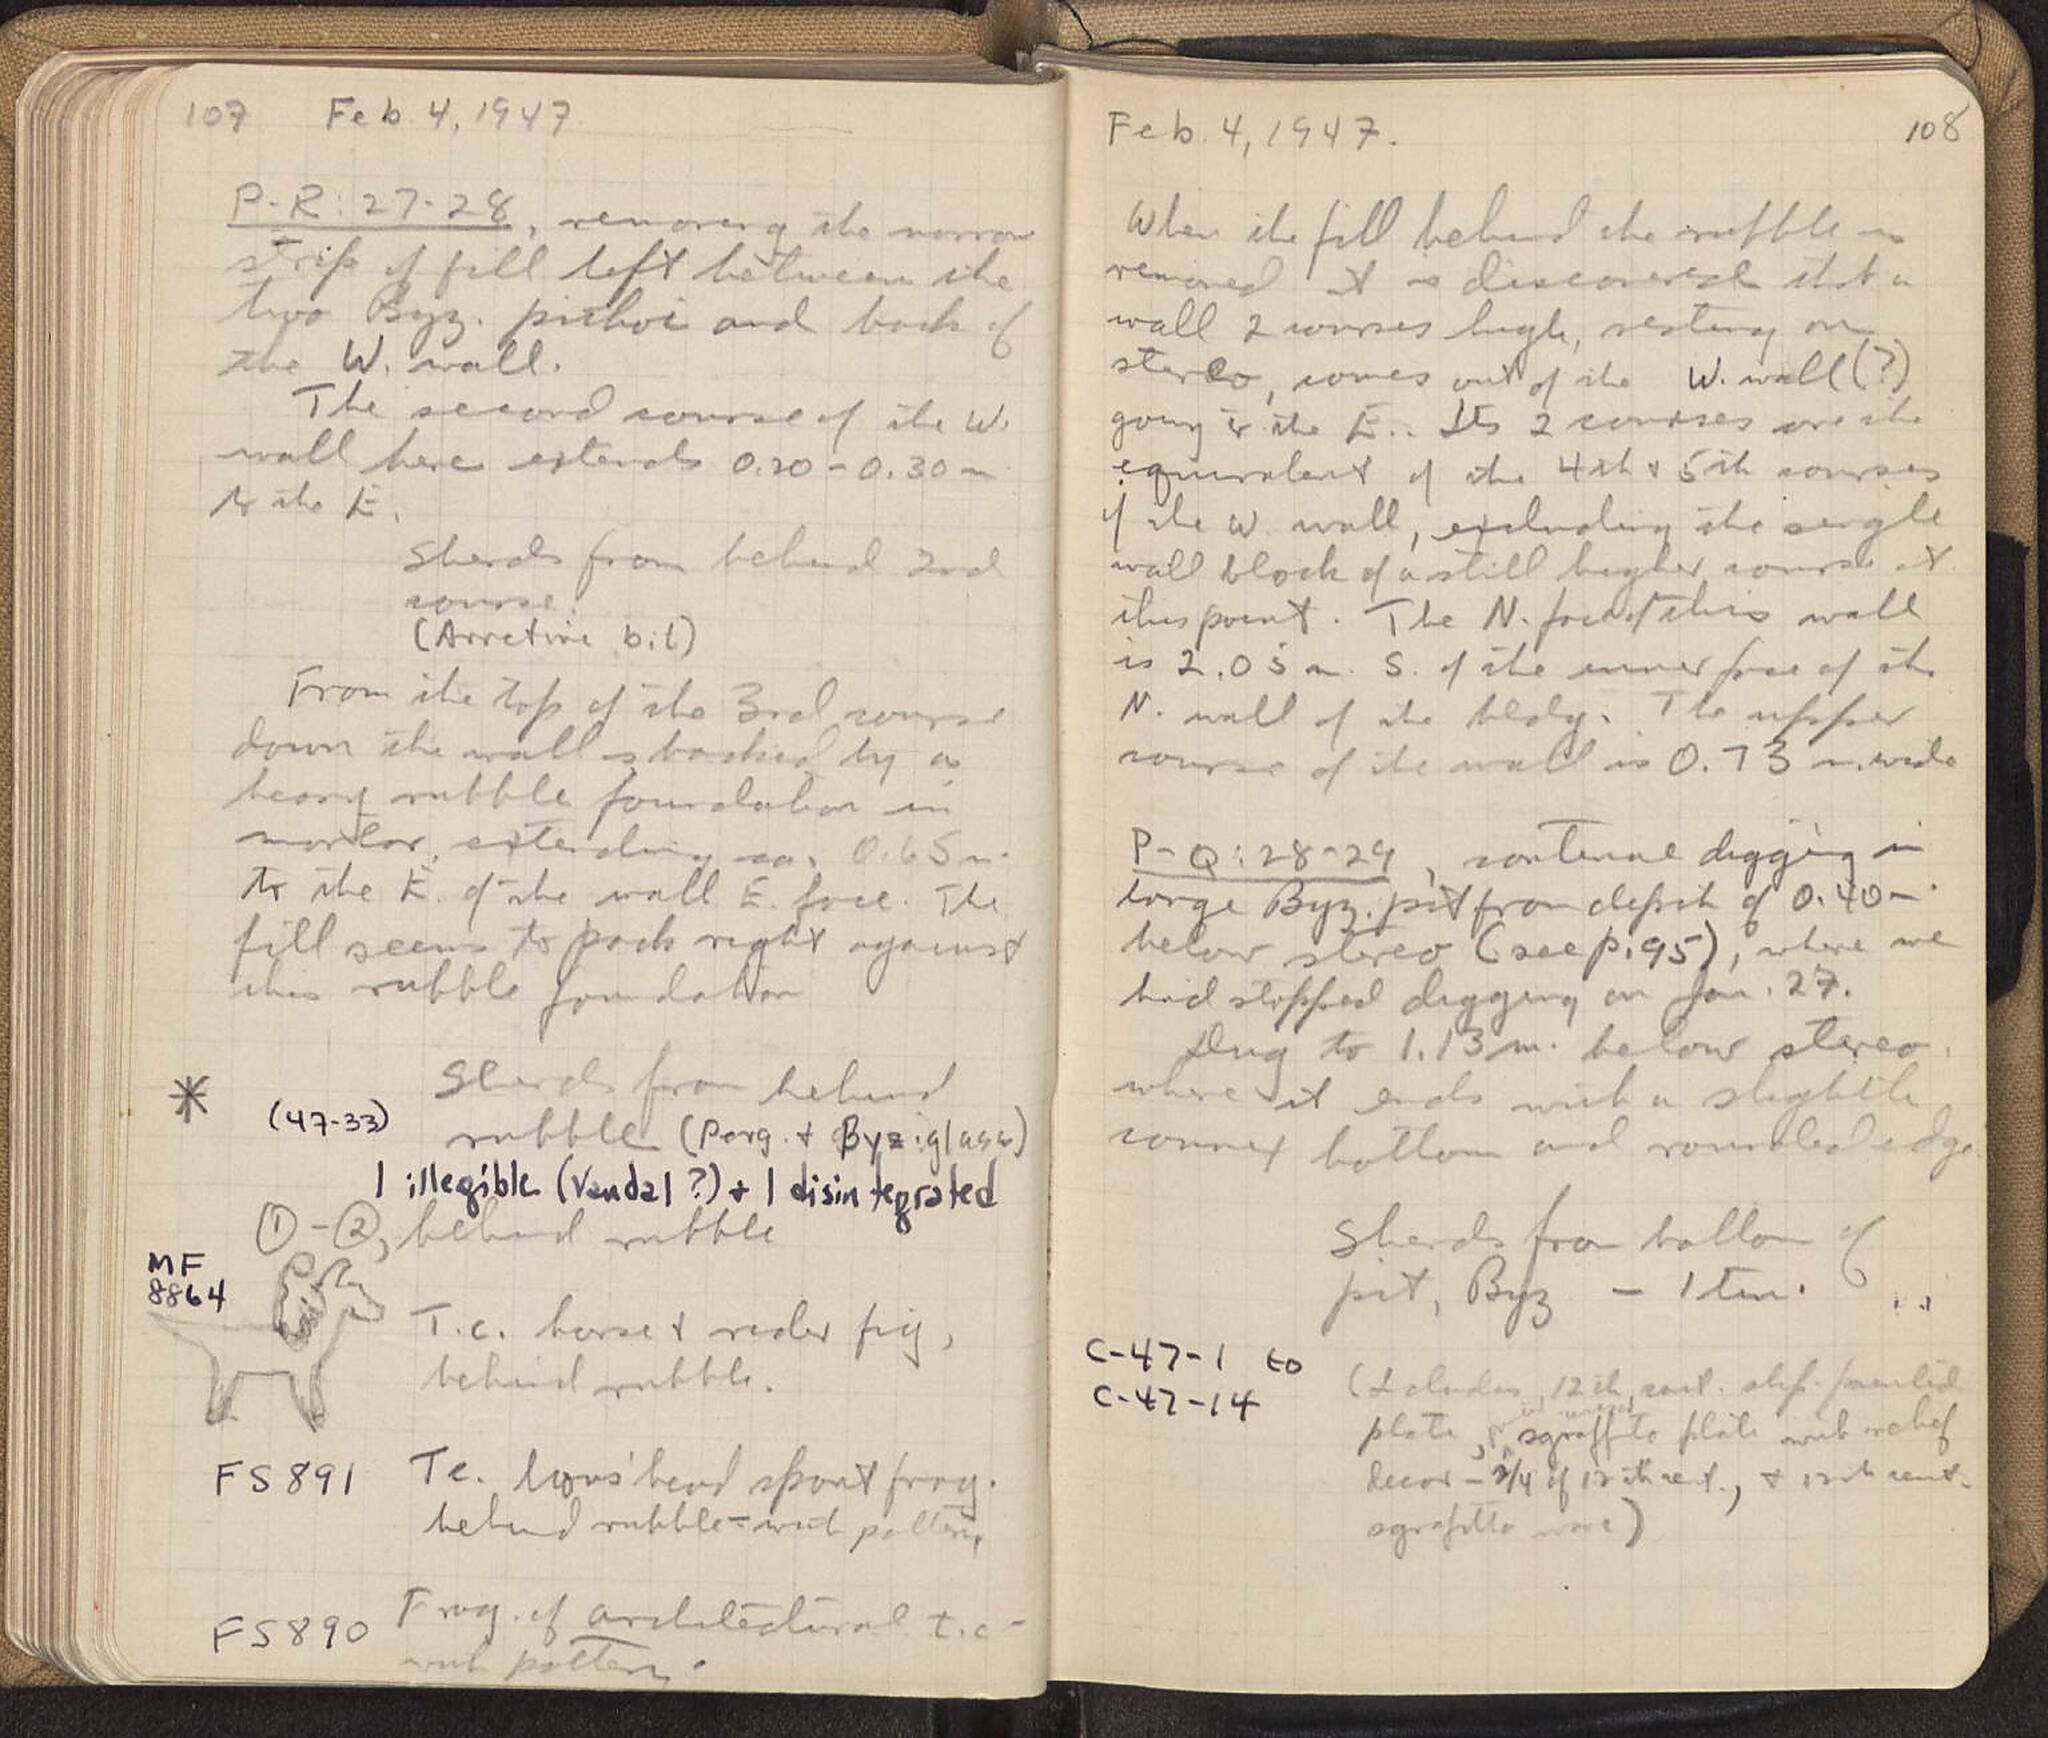 107 Feb. 4, 1947
P-R: 27-28, removing the narrow
strip of fill left between the
two Byz. pithoi and back of
the W. wall.
The second course of the W.
wall here extends 0.20-0.30 m
to the E.
Sherds from behind 2nd
course.
(Arretine bit)
From the top of the 3rd course
down the wall is backed by a
heavy rubble foundation in
mortar, extending ca. 0.65 m.
to the E. of the wall E. face. The
fill seems to pack right against
this rubble foundation
*
Sherds from behind
(47-33) rubble (Perg. + Byz: glass)
1 illegible (Vandal ?) + 1 disintegrated
①-②, behind rubble
MF
8864
T.c. horse + rider fig,
behind rubble.
FS 891 Tc. lions' head spout frag.
behind rubble - with pottery
FS 890 Frag. of architectural t.c -
with pottery.
Feb. 4, 1947. 108
When the fill behind the rubble is
removed it is discovered that a
wall 2 courses high, resting on
stereo, comes out of the W. wall (?)
going to the E.. Its 2 courses are the
equivalent of the 4th + 5th courses
of the W. wall, excluding the single
wall block of a still higher course at
this point. The N. face of this wall
is 2.05 m. S. of the inner face of the
N. wall of the bldg. The upper
course of the wall is 0.73 m. wide
P-Q: 28-29, continue digging in
large Byz. pit from depth of 0.40 m.
below stereo (see p. 95), where we
had stopped digging on Jan. 27.
Dug to 1.13 m. below stereo,
where it ends with a slightly
convex bottom and rounded edge.
Sherds from bottom of
pit, Byz - 1 tin.
C-47-1 to
C-47-14
(Includes 12th cent. slip-painted
plate, sgraffito plate with relief
decor - 3/4 of 12th cent., + 12th cent.
sgraffito ware)